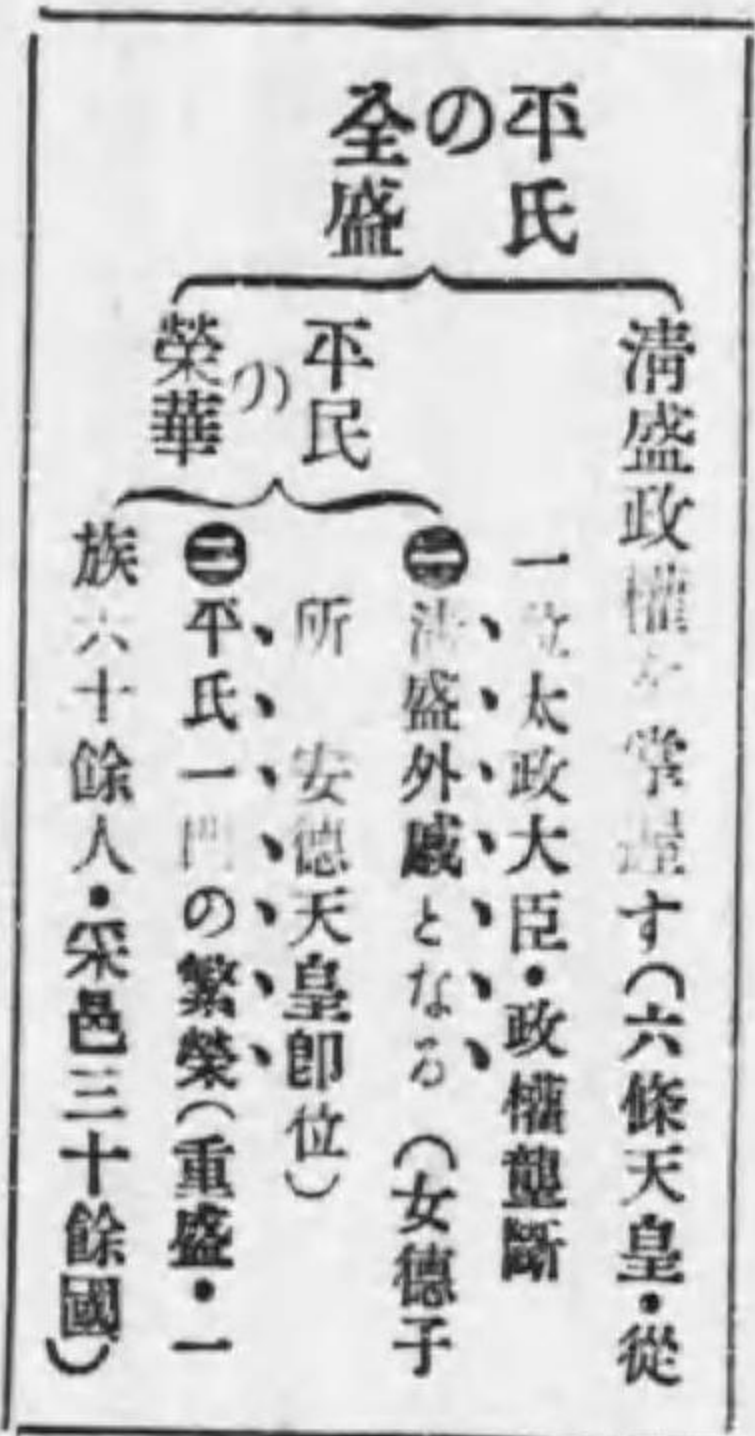 平氏
の
全盛
清盛政權を掌握す(六條天皇・從
一位太政大臣・政權壟斷
平民
の
榮華
㊁清盛外戚となる(女德子
所 安德天皇卽位)
㊂平氏一門の繁榮(重盛・一
族六十餘人・采邑三十餘國)